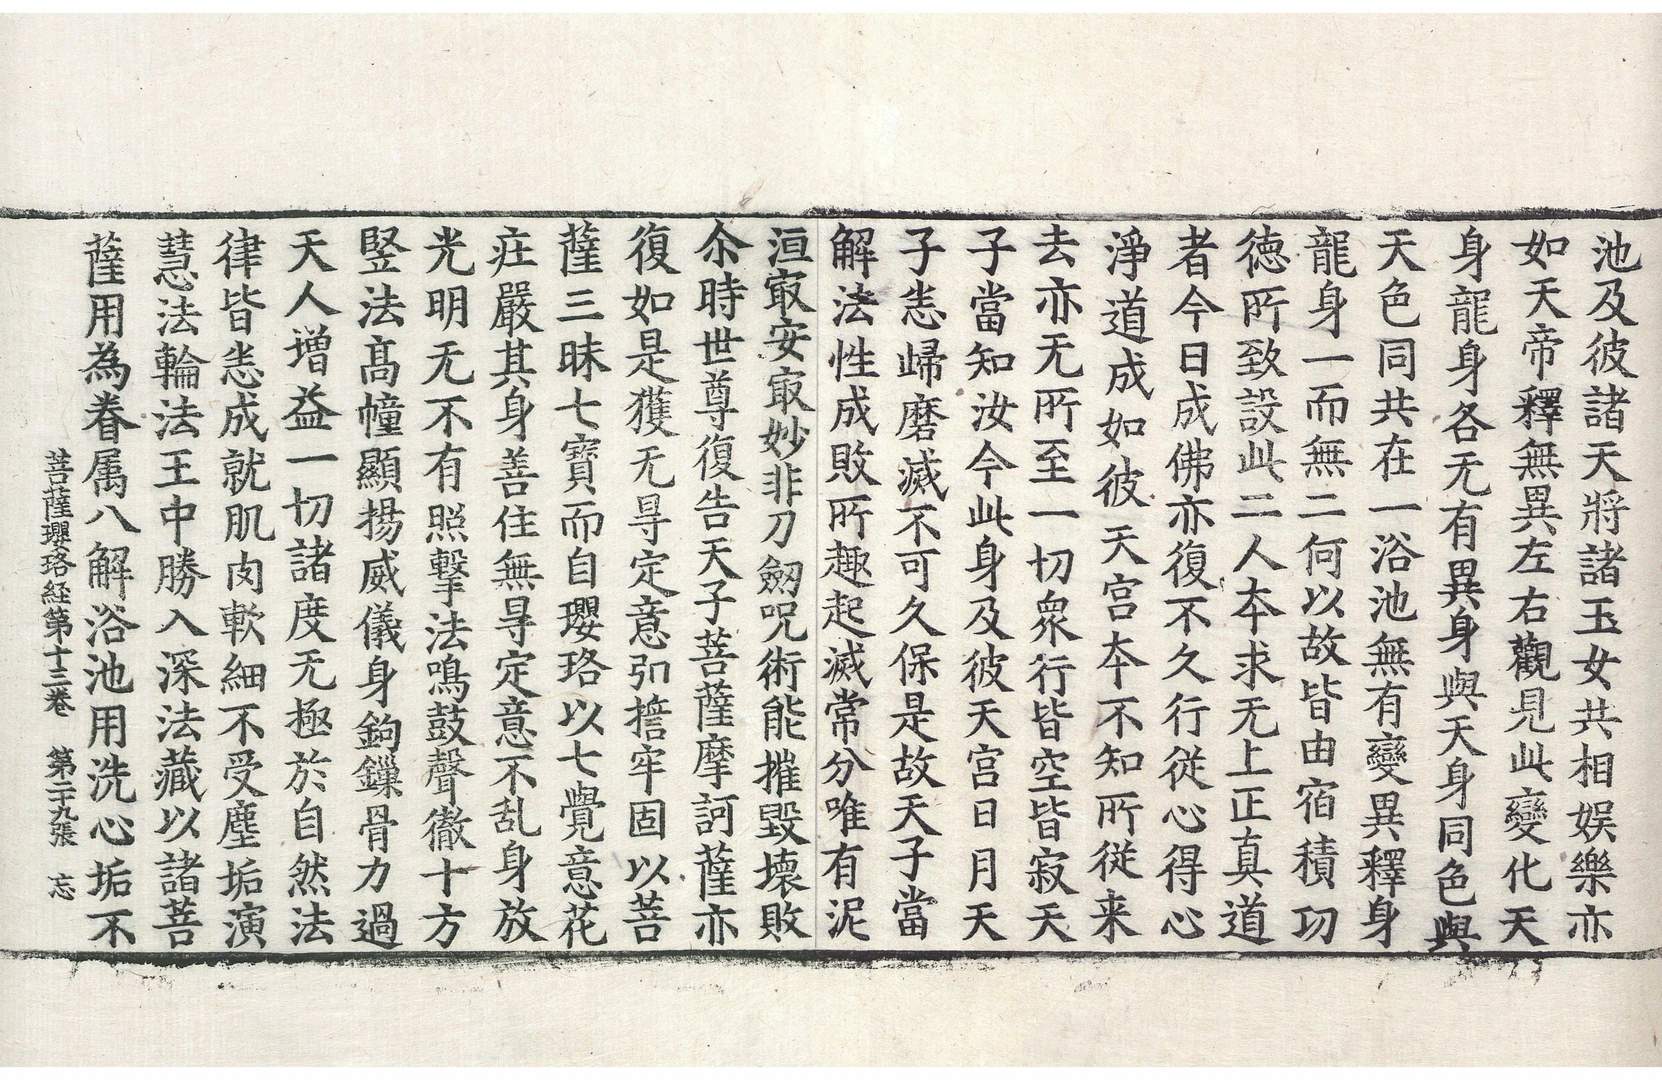 池及彼諸天將諸玉女共相娛樂亦
如天帝釋無異左右觀見此變化天
身龍身各无有異身與天身同色與
天色同共在一浴池無有變異釋身
龍身一而無二何以故皆由宿積功
德所致設此二人本求无上正真道
者今日成佛亦復不久行從心得心
淨道成如彼天宮本不知所從来
去亦无所至一切衆行皆空皆寂天
子當知汝今此身及彼天宮日月天
子恚歸磨滅不可久保是故天子當
解法性成敗所趣起滅常分唯有泥
洹㝡安㝡妙非刀劔呪術能摧毀壞敗
尒時世尊復告天子菩薩摩訶薩亦
復如是獲无㝵定意弘擔牢固以菩
薩三昧七寶而自瓔珞以七覺意花
庄嚴其身善住無㝵定意不乱身放
光明无不有照擊法鳴鼓聲徹十方
竪法髙幢顯揚威儀身鉤鏁骨力過
天人增益一切諸度无極於自然法
律皆恚成就肌肉軟細不受塵垢演
慧法輪法王中勝入深法藏以諸菩
薩用為眷属八解浴池用洗心垢不
菩薩瓔珞経第十三卷 第二十九張 忘